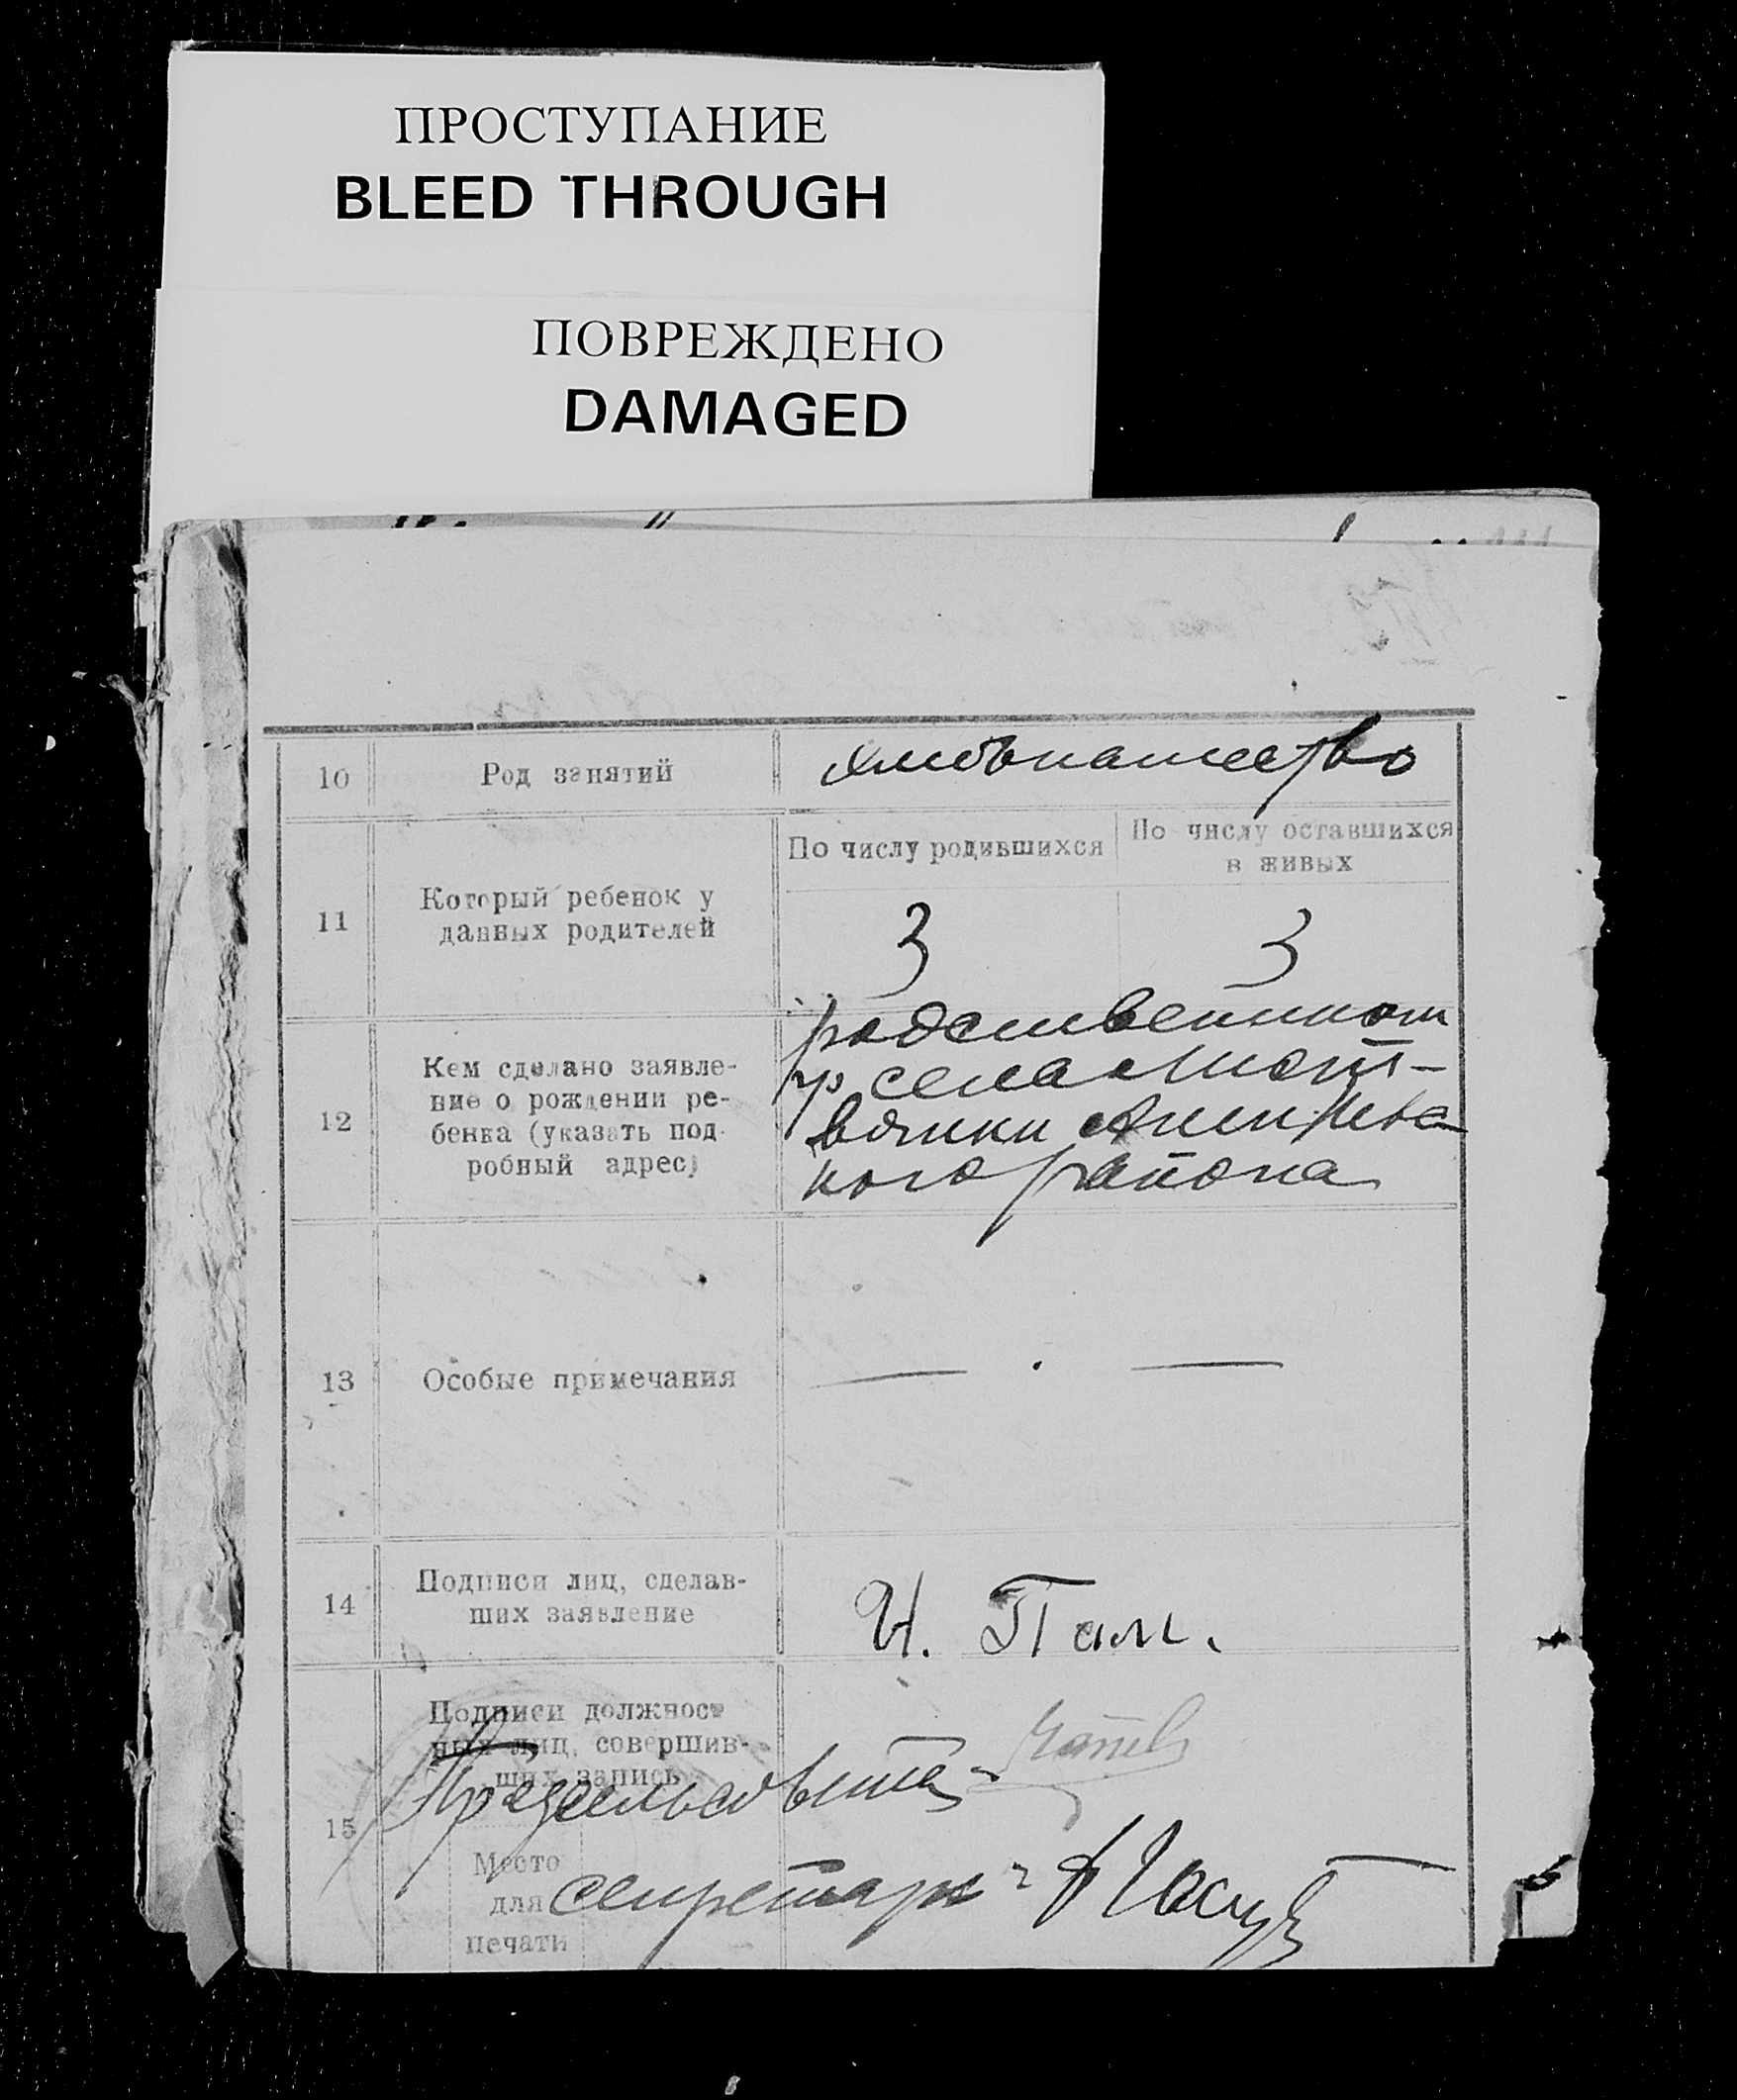 ПРОСТУПАНИЕ
BLEED THROUGH
ПОВРЕЖДЕНО
DAMAGED
10
Род занятий
хлебопашество
11
Который ребенок у
данных родителей
По числу родившихся
По числу оставшихся
в живых
3
3
12
Кем сделано заявле-
ние о рождении ре-
бенка (указать под-
робный адрес)
родственником
села
района
13
Особые примечания
— . —
14
Подписи лиц, сделав-
ших заявление
И. Пам.
15
Подписи должност
ных лиц, совершив-
ших запись
Предсельсовета -
Место
для
печати
секретарь